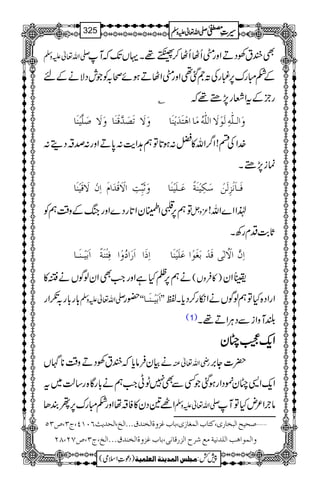 سیرتِ مصطفیٰ صلی اللہ تعالیٰ علیہ وسلم 325
بھی خندق کھودتے اور مٹی اُٹھا اُٹھا کر پھینکتے تھے۔ یہاں تک کہ آپ صلی اللہ تعالیٰ علیہ وسلم
کے شکم مبارک پر غبار کی تہ جم گئی تھی اور مٹی اٹھاتے ہوئے صحابہ کو جوش دلانے کے لئے
رجز کے یہ اشعار پڑھتے تھے کہ ؎
وَاللّٰہِ لَوْ لَا اللّٰہُ مَا اھْتَدَیْنَا وَلَا تَصَدَّقْنَا وَلَا صَلَّیْنَا
خدا کی قسم! اگر اللہ کا فضل نہ ہوتا تو ہم ہدایت نہ پاتے اور نہ صدقہ دیتے نہ
نماز پڑھتے۔
فَاَنْزِلَنْ سَکِیْنَۃً عَلَیْنَا وَثَبِّتِ الْاَقْدَامَ اِنْ لَاقَیْنَا
لہٰذا اے اللہ! عزوجل تو ہم پر قلبی اطمینان اتار دے اور جنگ کے وقت ہم کو
ثابت قدم رکھ۔
اِنَّ الْاُلٰی قَدْ بَغَوْا عَلَیْنَا اِذَا اَرَادُوْا فِتْنَۃً اَبَیْنَا
یقیناً ان (کافروں) نے ہم پر ظلم کیا ہے اور جب بھی ان لوگوں نے فتنہ کا
ارادہ کیا تو ہم لوگوں نے انکار کر دیا۔ لفظ ’’اَبَیْنَا‘‘ حضور صلی اللہ تعالیٰ علیہ وسلم بار بار بہ تکرار
بلند آواز سے دہراتے تھے۔ (۱)
ایک عجیب چٹان
حضرت جابر رضی اللہ تعالیٰ عنہ نے بیان فرمایا کہ خندق کھودتے وقت ناگہاں
ایک ایسی چٹان نمودار ہو گئی جو کسی سے بھی نہیں ٹوٹی جب ہم نے بارگاہ رسالت میں یہ
ماجرا عرض کیا تو آپ صلی اللہ تعالیٰ علیہ وسلم اٹھے تین دن کا فاقہ تھا اور شکم مبارک پر پتھر بندھا
۱……صحیح البخاری، کتاب المغازی، باب غزوۃ الخندق...الخ، الحدیث ۴۱۰۶، ج۳، ص۵۳
والمواھب اللدنیۃ مع شرح الزرقانی، باب غزوۃ الخندق...الخ، ج۳، ص۲۷،۲۸
پیش کش: مجلس المدینۃ العلمیۃ (دعوتِ اسلامی)